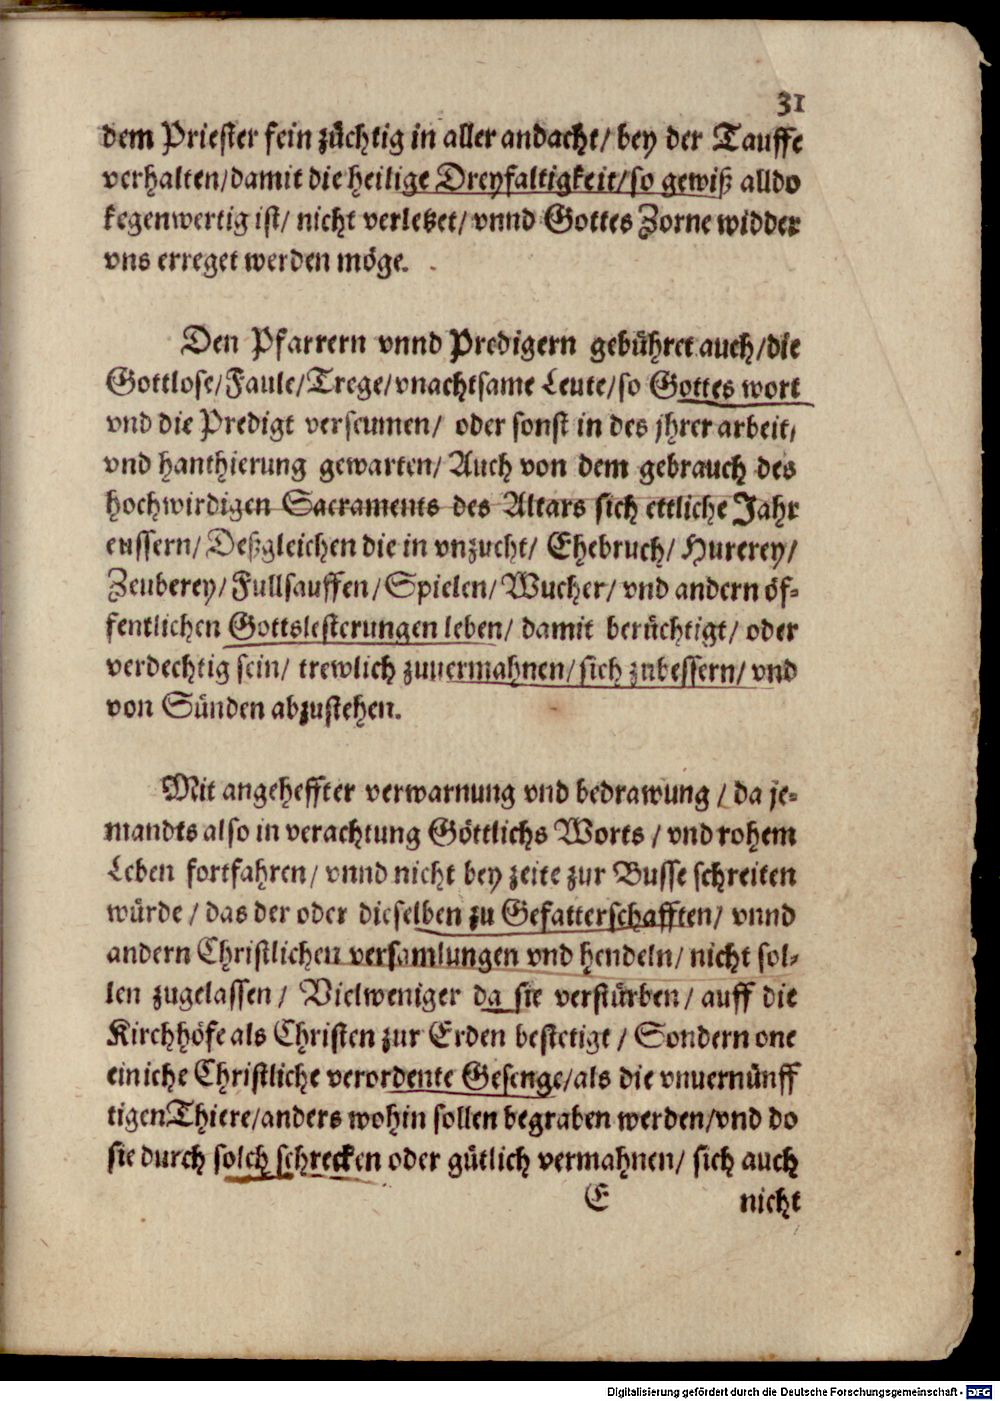 31
dem Priester fein züchtig in aller andacht/ bey der Tauffe
verhalten/damit die heilige Dreyfaltigkeit/so gewiß alldo
kegenwertig ist/ nicht verletzet/ vnnd Gottes Zorne widder
vns erreget werden möge.
Den Pfarrern vnnd Predigern gebühret auch/die
Gottlose/Faule/Trege/vnachtsame Leute/so Gottes wort
vnd die Predigt verseumen/ oder sonst in des jhrer arbeit/
vnd hanthierung gewarten/ Auch von dem gebrauch des
hochwirdigen Sacraments des Altars sich ettliche Jahr
eussern/ Deßgleichen die in vnzucht/ Ehebruch/ Hurerey/
Zeuberey/ Fullsauffen/ Spielen/ Wucher/ vnd andern öf-
fentlichen Gottslesterungen leben/ damit berüchtigt/ oder
verdechtig sein/ trewlich zuuermahnen/ sich zubessern/ vnd
von Sünden abzustehen.
Mit angeheffter verwarnung vnd bedrawung / da je-
mandts also in verachtung Göttlichs Worts / vnd rohem
Leben fortfahren/ vnnd nicht bey zeite zur Busse schreiten
würde / das der oder dieselben zu Gefatterschafften/ vnnd
andern Christlichen versamlungen vnd hendeln/ nicht sol-
len zugelassen/ Vielweniger da sie verstürben/ auff die
Kirchhöfe als Christen zur Erden bestetigt / Sondern one
einiche Christliche verordente Gesenge/als die vnuernünff
tigen Thiere/anders wohin sollen begraben werden/vnd do
sie durch solch schrecken oder gütlich vermahnen/ sich auch
E nicht
Digitalisierung gefördert durch die Deutsche Forschungsgemeinschaft - DFG